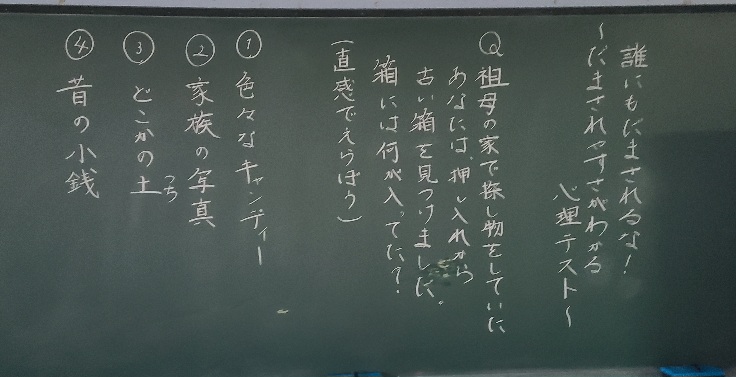 誰にもだまされるな！
～だまされやすさがわかる
心理テスト～
Q 祖母の家で探し物をしていた
あなたは、押し入れから
古い箱を見つけました。
箱には何が入ってた？
（直感でえらぼう）
① 色々なキャンディー
② 家族の写真
③ どこかの土
つち
④ 昔の小銭